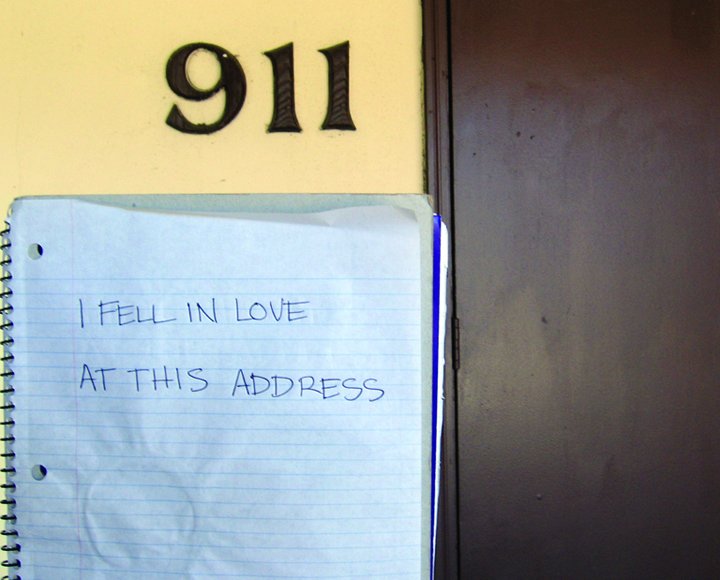 911
I FELL IN LOVE
AT THIS ADDRESS